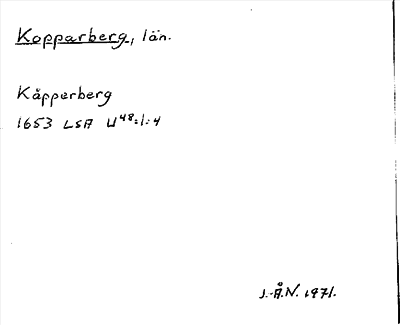 Kopparberg, län.
Kåpperberg
1653 LSA U48:1:4
J.-Å.N. 1971.